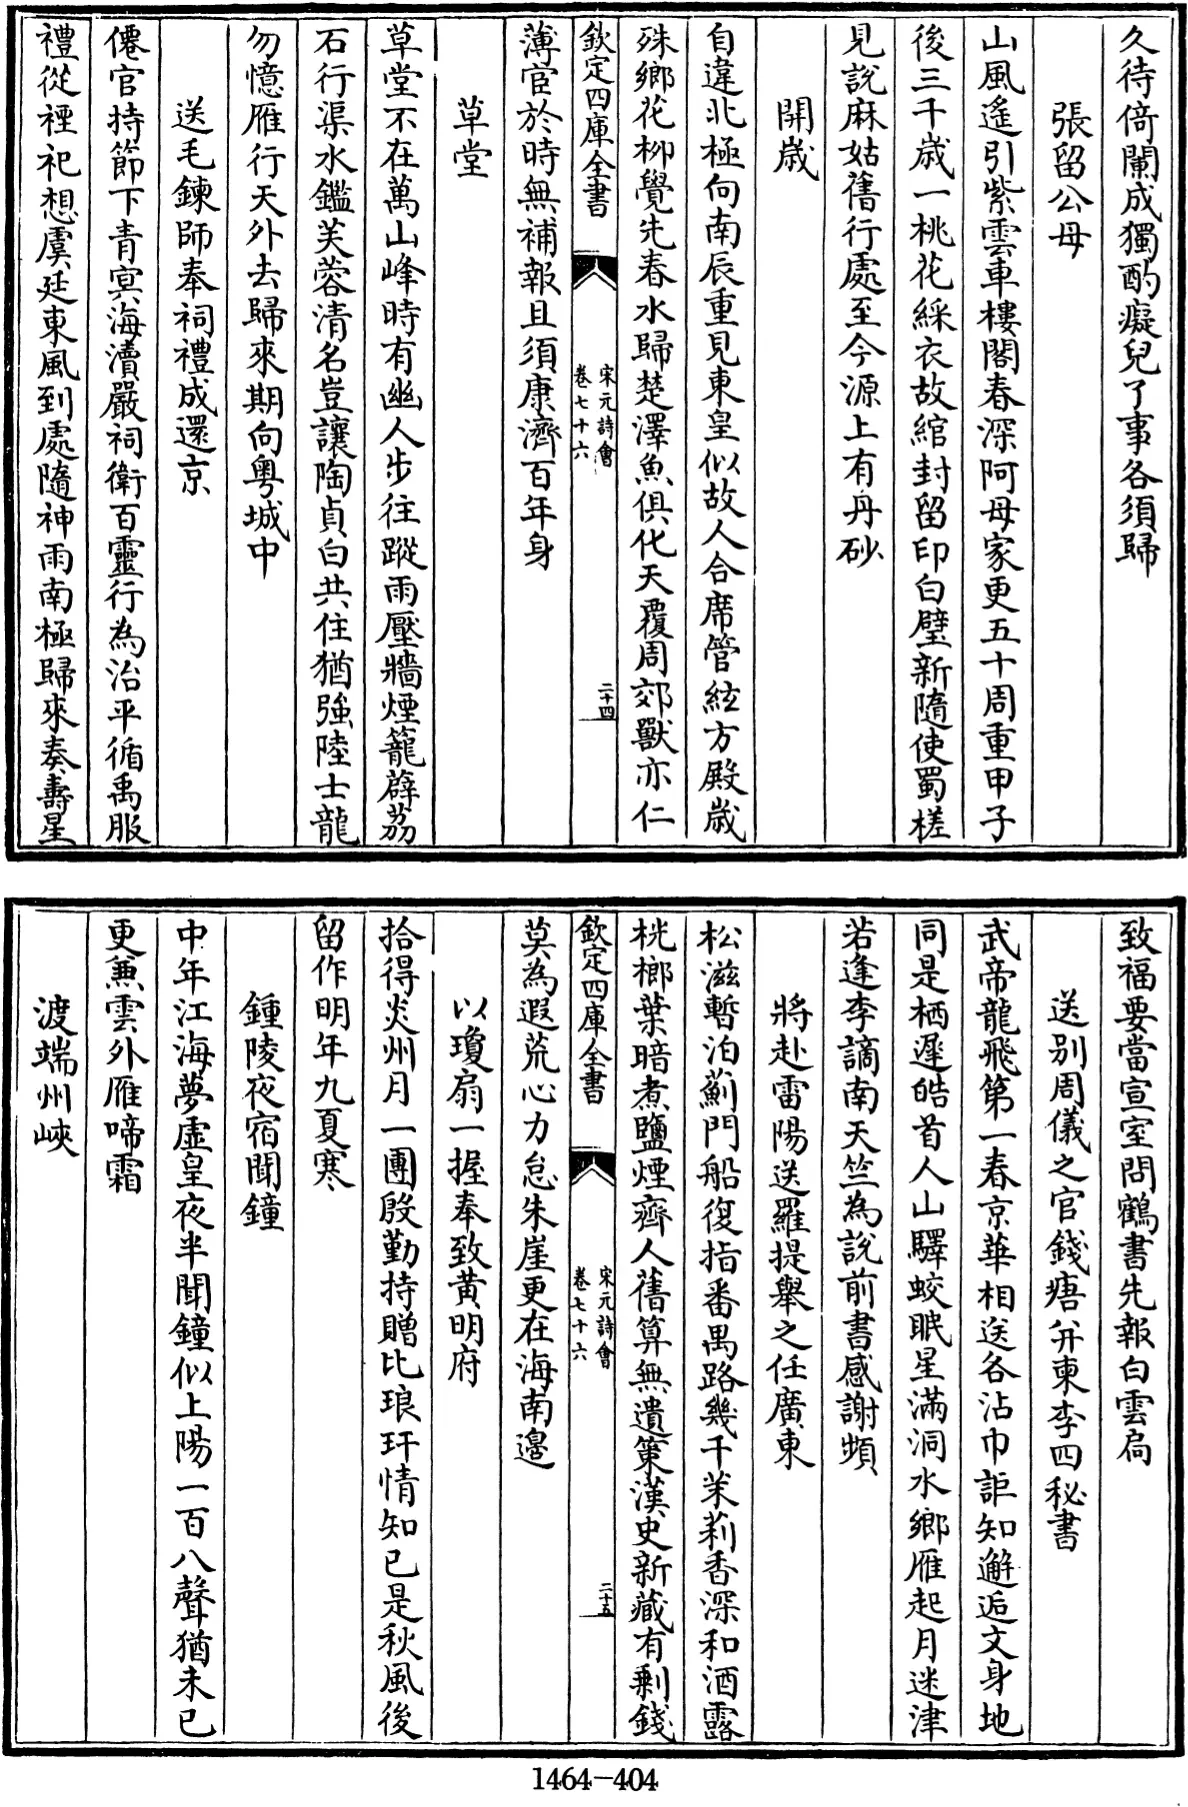 久待倚闌成獨酌癡兒了事各須歸
張留公母
山風遙引紫雲車樓閣春深阿母家更五十周重甲子
後三千歳一桃花綵衣故綰封留印白璧新隨使蜀槎
見說麻姑舊行處至今源上有丹砂
開歳
自違北極向南辰重見東皇似故人合席管絃方殿歳
殊鄉花栁覺先春水歸楚澤魚俱化天覆周郊獸亦仁
欽定四庫全書
宋元詩會
卷七十六
二十四
薄宦於時無補報且須康濟百年身
草堂
草堂不在萬山峰時有幽人步往蹤雨壓牆煙籠薜荔
石行渠水鑑芙蓉清名豈讓陶貞白共住猶強陸士龍
勿憶雁行天外去歸來期向粤城中
送毛鍊師奉祠禮成還京
僊官持節下青冥海瀆嚴祠衛百靈行為治平循禹服
禮從禋祀想虞廷東風到處隨神雨南極歸來奏壽星
致福要當宣室問鶴書先報白雲扃
送别周儀之官錢塘并柬李四秘書
武帝龍飛第一春京華相送各沾巾詎知邂逅文身地
同是栖遲皓首人山驛蛟眠星滿洞水鄉雁起月迷津
若逢李謫南天竺為説前書感謝頻
將赴雷陽送羅提舉之任廣東
松滋暫泊薊門船復指番禺路幾千茉莉香深和酒露
桄榔葉暗煮鹽煙齊人舊算無遺䇿漢史新藏有剰錢
欽定四庫全書
宋元詩會
卷七十六
二十五
莫為遐荒心力怠朱崖更在海南邊
以瓊扇一握奉致黄明府
拾得炎州月一團殷勤持贈比琅玕情知已是秋風後
留作明年九夏寒
鍾陵夜宿聞鐘
中年江海夢虛皇夜半聞鐘似上陽一百八聲猶未已
更兼雲外雁啼霜
渡端州峽
1464-404